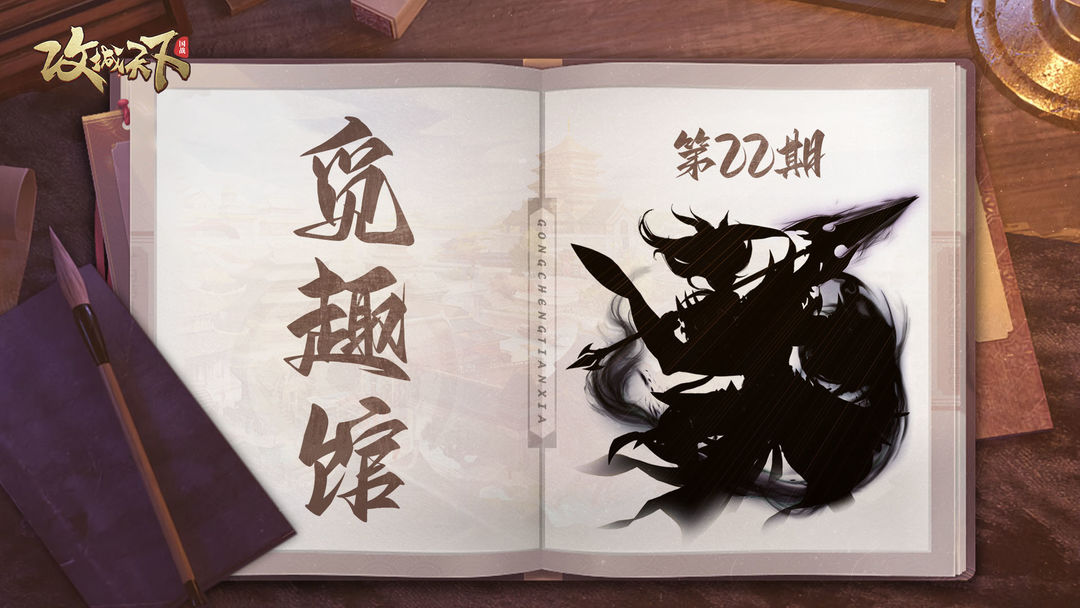 攻城天下
国战
觅趣馆
第22期
GONGCHENGTIANXIA